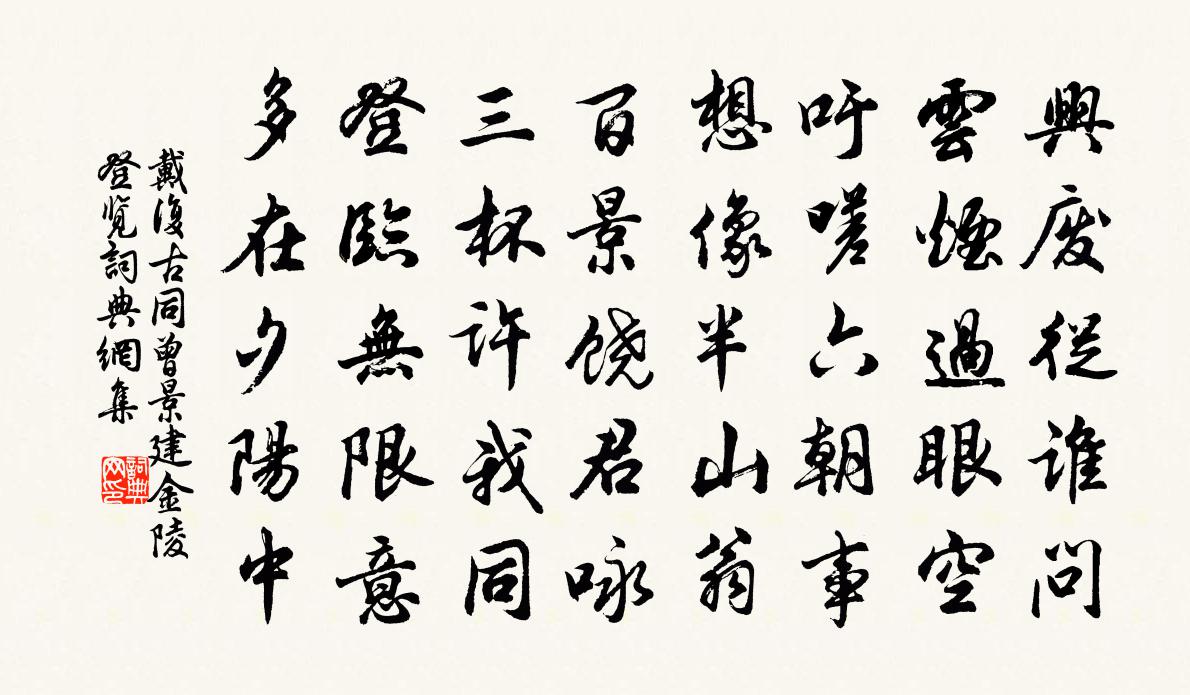 興廢從誰問
雲煙過眼空
吁嗟六朝事
想像半山翁
百景饒君咏
三杯許我同
登臨無限意
多在夕陽中
戴復古同曾景建金陵
登覽詞典網集
詞典
网印